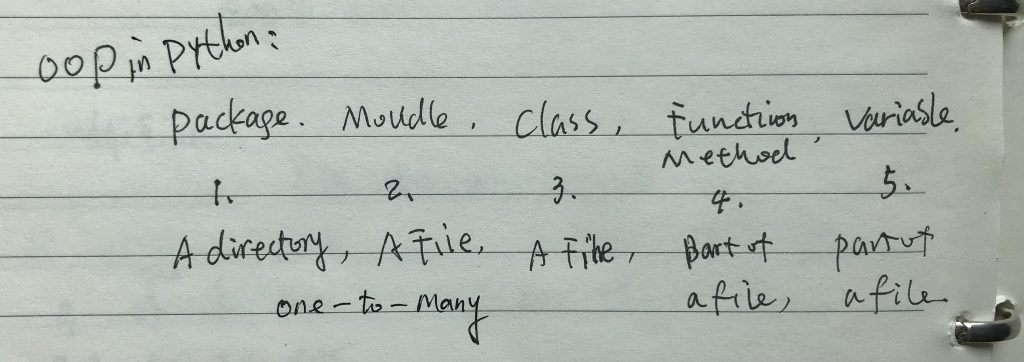 OOP in Python:
Package. Moudle, Class, Function Method, Variable.
1. 2. 3. 4. 5.
A directory, A File, A File, Part of a file, part of a file
one-to-many